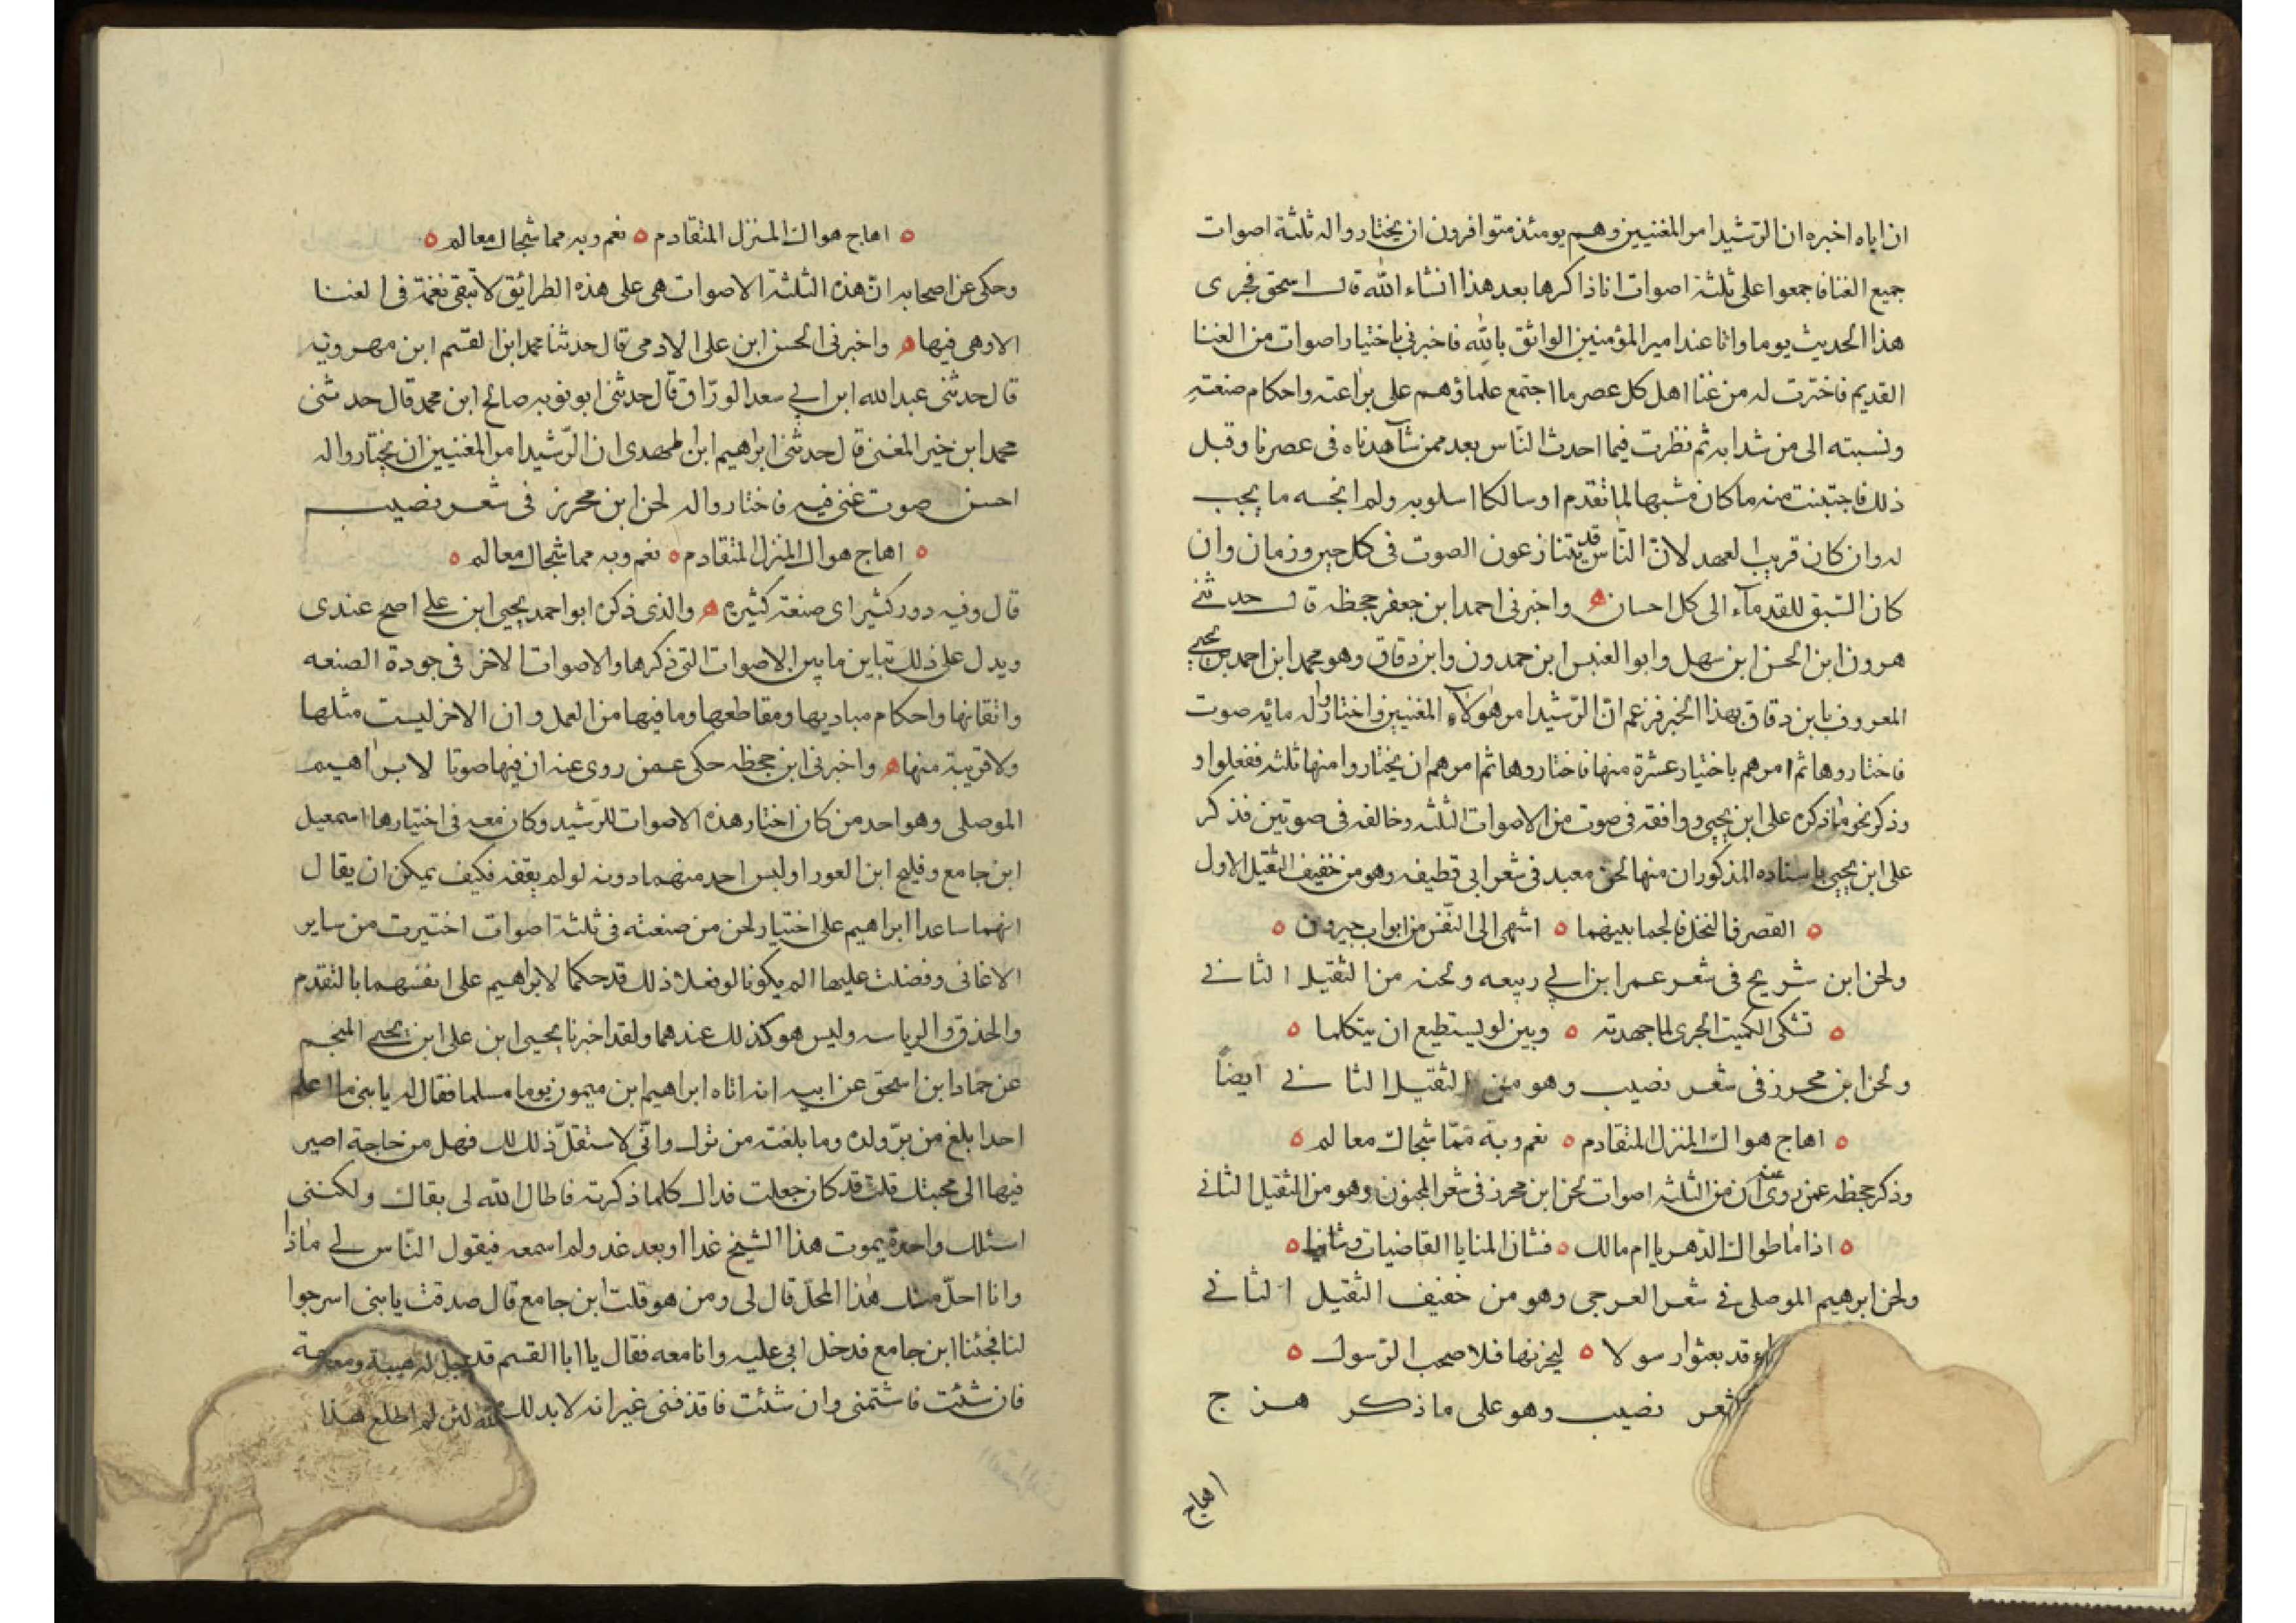 ان اباه اخبره ان الرّشيد امر المغنيين وهم يومئذ متوافرون ان يختاروا له ثلثة اصوات
جميع الغنا فاجمعوا على ثلثة اصوات انا ذاكرها بعد هذا انشاء الله قال اسحق فجرى
هذا الحديث يوما وانا عند امير المؤمنين الواثق بالله فاخبرنى باختيار اصوات من الغنا
القديم فاخترت له من غنا اهل كل عصر ما اجتمع علماؤهم على براعته واحكام صنعته
ونسبته الى من شدا به ثم نظرت فيما احدث النّاس بعد ممن شاهدناه فى عصرنا وقبل
ذلك فاجتبنت منه ما كان مشبها لما تقدم او سالكا اسلوبه ولم ابخسه ما يجب
له وان كان قريب العهد لانّ النّاس قد يتنازعون الصوت فى كل حين وزمان وان
كان السّبق للقدمآء الى كل احسان ه واخبرنى احمد ابن جعفر جحظه قال حدثنے
هرون ابن الحسن ابن سهل وابو العنبس ابن حمدون وابن دقاق وهو محمد ابن احمد بن يحيى
المعروف بابن دقاق بهذا الخبر فزعم انّ الرّشيد امر هؤلآء المغنيين واختاروا له مائه صوت
فاختاروها ثم امرهم باختيار عشرة منها فاختاروها ثم امرهم ان يختاروا منها ثلثه ففعلوا و
وذكر نحو ما ذكره على ابن يحيى ووافقه فى صوت من الاصوات الثلثه وخالفه فى صوتين فذكر
على ابن يحيى باسناده المذكور ان منها لحن معبد فى شعر ابى قطيفه وهو من خفيف الثقيل الاول
ه القصر فالنخل فالجما بينهما ه اشهى الى النّفس من ابواب جيرون ه
ولحن ابن شريح فى شعر عمر ابن ابے ربيعه ولحنه من الثقيل الثانے
ه تشكى الكميت الجرى لما جهدته ه وبين لو يستطيع ان يتكلما ه
ولحن ابن محرز فى شعر نصيب وهو من الثقيل الثانے ايضاً
ه اهاج هواك المنزل المتقادم ه نعم وبه ممّا شجاك معالم ه
وذكر جحظه عمن روى عنه ان من الثلثه اصوات لحن ابن محرز فى شعر المجنون وهو من الثقيل الثانے
ه اذا ما طواك الدّهر يا ام مالك ه فشان المنايا القاضيات وشانيا ه
ولحن ابرهيم الموصلى فے شعر العرجى وهو من خفيف الثقيل الثانے
قد بعثوا رسولا ه ليحزنها فلا صحب الرّسول ه
شعر نصيب وهو على ما ذكر هزج
اهاج
ه اهاج هواك المنزل المتقادم ه نعم وبه مما شجاك معالم ه
وحكى عن اصحابه انّ هذه الثلثة الاصوات هى على هذه الطرائق لا تبقى نغمة فى الغنا
الا وهى فيها ه واخبرنى الحسن ابن على الادمى قال حدثنا محمد ابن القسم ابن مهرويه
قال حدثنى عبد الله ابن ابے سعد الورّاق قال حدثنى ابو توبه صالح ابن محمد قال حدثنى
محمد ابن خير المغنى قال حدثنى ابراهيم ابن المهدى ان الرّشيد امر المغنيين ان يختاروا له
احسن صوت غنى فيه فاختاروا له لحن ابن محرز فى شعر نصيب
ه اهاج هواك المنزل المتقادم ه نعم وبه مما شجاك معالم ه
قال وفيه دور كثير اى صنعة كثيره ه والذى ذكره ابو احمد يحيى ابن علے اصح عندى
ويدل على ذلك تباين ما بين الاصوات التى ذكرها والاصوات الاخر فى جودة الصنعه
واتقانها واحكام مباديها ومقاطعها وما فيها من العمل وان الاخر ليست مثلها
ولا قريبة منها ه واخبرنى ابن جحظه حكى عمن روى عنه ان فيها صوتا لابراهيم
الموصلى وهو احد من كان اختار هذه الاصوات للرّشيد وكان معه فى اختيارها اسمعيل
ابن جامع وفليح ابن العورا وليس احد منهما دونه لو لم يفقه فكيف يمكن ان يقال
انهما ساعدا ابراهيم على اختيار لحن من صنعته فى ثلثة اصوات اختيرت من ساير
الاغانى وفضلت عليها الم يكونا لو فعلا ذلك قد حكما لابراهيم على انفسهما بالتقدم
والحذق والرياسه وليس هو كذلك عندهما ولقد اخبرنا يحيى ابن على ابن يحيى المنجم
عن حماد ابن اسحق عن ابيه انه اتاه ابراهيم ابن ميمون يوما مسلما فقال له يا بنى ما اعلم
احدا بلغ من برّ ولده وما بلغته من برك وانّى لاستقلّ ذلك لك فهل من حاجة اصير
فيها الى محبتك قلت قد كان جعلت فداك كلما ذكرته فاطال الله لى بقاك ولكننى
اسئلك واحدة يموت هذا الشيخ غدا او بعد غد ولم اسمعه فيقول النّاس لے ماذا
وانا احلّ منك هذا المحلّ قال لى ومن هو قلت ابن جامع قال صدقت يا بنى اسرجوا
لنا فجئنا ابن جامع فدخل ابى عليه وانا معه فقال يا ابا القسم قد
فان شئت فاشتمنى وان شئت فاقذفنى غير انه لا بد لك لئن لم اطلع هذا